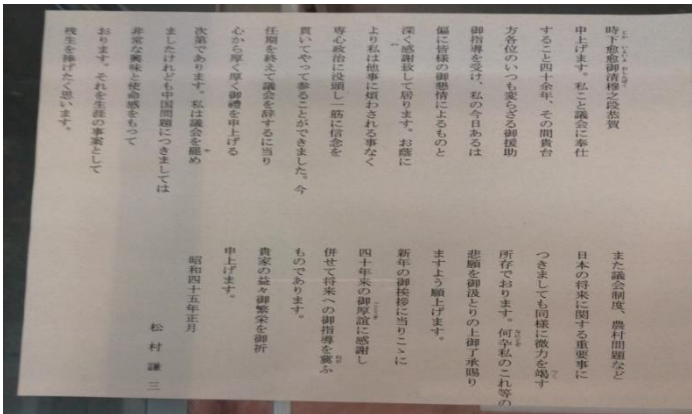 時下愈愈御清穆之段恭賀
申上げます。私こと議会に奉仕
すること四十余年、その間貴台
方各位のいつも変らざる御援助
御指導を受け、私の今日あるは
偏に皆様の御懇情によるものと
深く感謝致して居ります。お蔭に
より私は他事に煩わされる事なく
専心政治に没頭し一筋に信念を
貫いてやって参ることができました。今
任期を終えて議会を辞するに当り
心から厚く厚く御禮を申上げる
次第であります。私は議会を罷め
ましたけれども中国問題につきましては
非常な興味と使命感をもって
おります。それを生涯の事案として
残生を捧げたく思います。
また議会制度、農村問題など
日本の将来に関する重要事に
つきましても同様に微力を竭す
所存でおります。何卒私のこれ等の
悲願を御汲とりの上御了承賜り
ますよう願上げます。
新年の御挨拶に当りこゝに
四十年来の御厚誼に感謝し
併せて将来への御指導を冀ふ
ものであります。
貴家の益々御繁栄を御祈
申上げます。
昭和四十五年正月
松村謙三